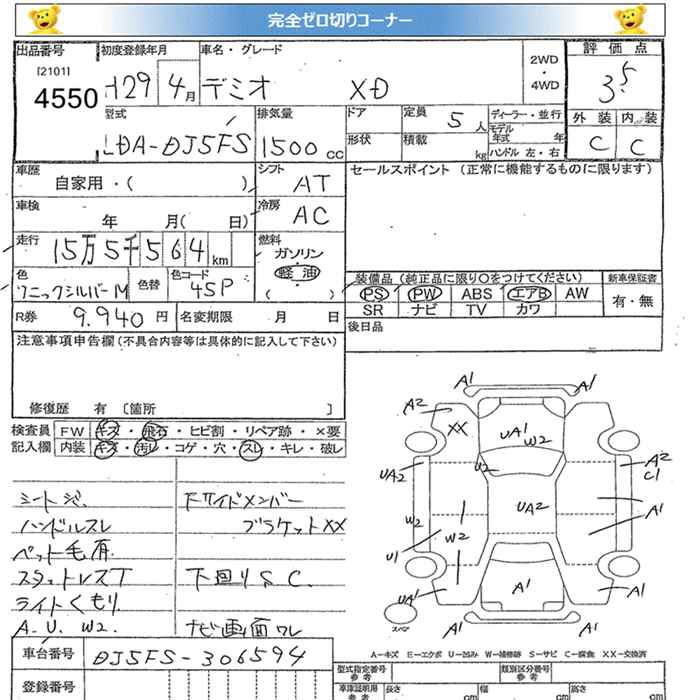 完全ゼロ切りコーナー
出品番号 初度登録年月 車名・グレード 評価点
[2101]
4550 H29年4月 デミオ XD 2WD・4WD 3.5
型式 排気量 ドア 定員 ディーラー・並行 外装 内装
LDA-DJ5FS 1500cc 5人 モデル年式 年 C C
形状 積載 kg ハンドル 左・右
車歴 自家用・( ) シフト AT セールスポイント(正常に機能するものに限ります)
車検 年 月( 日) 冷房 AC
走行 15万5千564km 燃料 ガソリン・軽油 ( )
色 ソニックシルバーM 色替 色コード 45P
装備品(純正品に限り○をつけてください) 新車保証書
PS PW ABS エアB AW 有・無
SR ナビ TV カワ
R券 9.940円 名変期限 月 日 後日品
注意事項申告欄(不具合内容等は具体的に記入して下さい)
修復歴 有 〔箇所 〕
検査員 FW キズ・飛石・ヒビ割・リペア跡・×要
記入欄 内装 キズ・汚レ・コゲ・穴・スレ・キレ・破レ
シートシミ 下サイドメンバー
ハンドルスレ ブラケットXX
ペット毛有
スタッドレスT 下回りS.C.
ライトくもり
A.U.W2. ナビ画面ワレ
A1 A1
A2 XX UA1 W2
UA2 U2 A2 C1
W2 UA2 A1
U1 W2
UA1 A1 A1
スペア A1 A1
A-キズ E-エクボ U-凹み W-補修跡 S-サビ C-腐食 XX-交換済
車台番号 DJ5FS-306594
登録番号
型式指定番号 類別区分番号
参考 参考
車庫証明用 長さ 幅 高さ
参考 cm cm cm